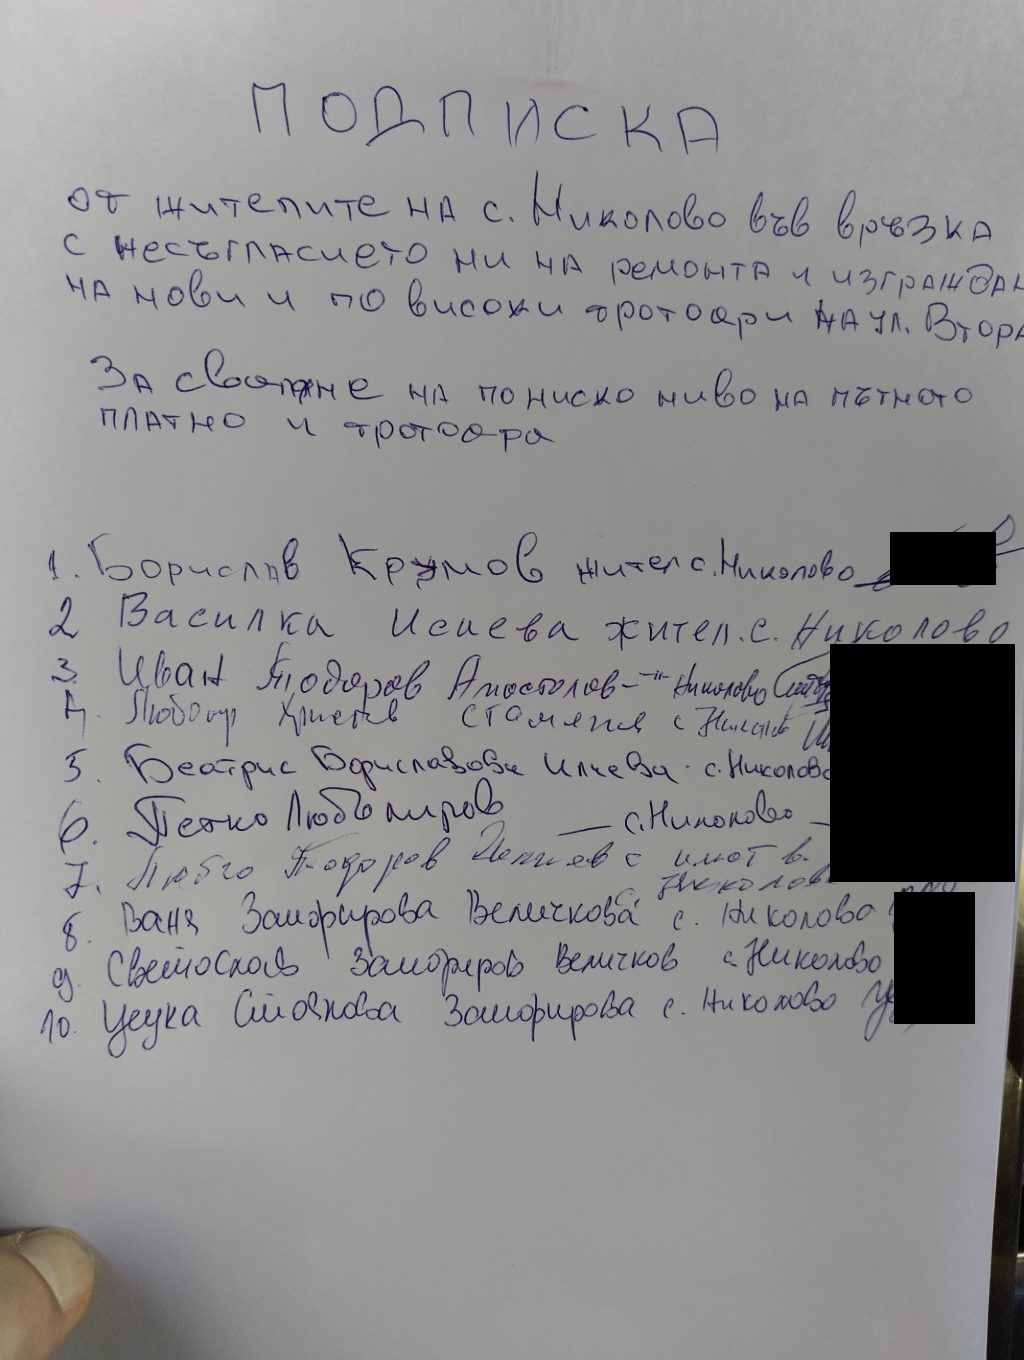 ПОДПИСКА
от жителите на с. Николово във връзка
с несъгласието ни на ремонта и изграждан
на нови и по високи тротоари на ул. Втора
За сваляне на по ниско ниво на пътното
платно и тротоара
1. Борислав Крумов жител с. Николово
2 Василка Исаева жител. с. Николово
3. Иван Тодоров Апостолов - " - Николово
4. Любомир Христов с.
5. Беатрис Бориславова Илиева с. Николово
6. Петко Любомиров — с. Николово —
7. Тодоров с имот в
Николово
8. Ваня Замфирова Величкова с. Николово
9. Светослав Замфиров Величков с. Николово
10. Цецка Стоянова Замфирова с. Николово